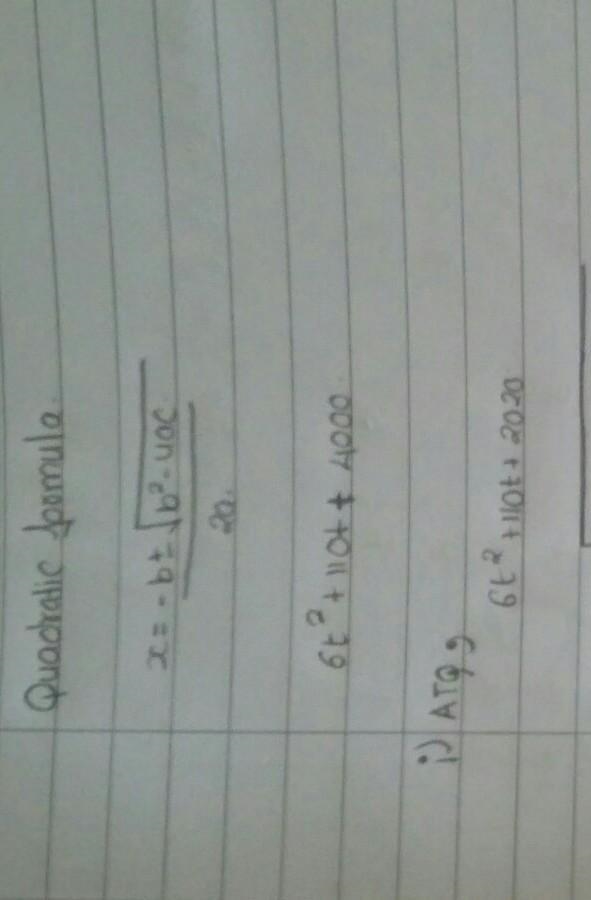 Quadratic formula.
x = -b ± √b² - 4ac
2a.
6t² + 110t + 4000.
i) ATQ,
6t² + 110t + 2020